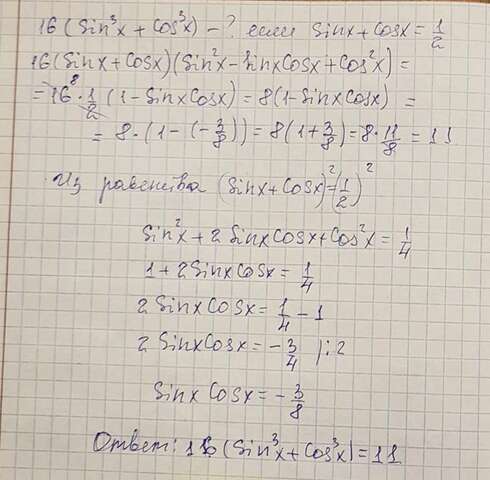 16 (Sin³x + Cos³x) - ? если Sinx + Cosx = 1/2
16(Sinx + Cosx)(Sin²x - SinxCosx + Cos²x) =
= 16⁸ · 1/2 (1 - SinxCosx) = 8(1 - SinxCosx) =
= 8 · (1 - (-3/8)) = 8(1 + 3/8) = 8 · 11/8 = 11
Из равенства (Sinx + Cosx)² = (1/2)²
Sin²x + 2SinxCosx + Cos²x = 1/4
1 + 2SinxCosx = 1/4
2SinxCosx = 1/4 - 1
2SinxCosx = -3/4 |:2
Sinx Cosx = -3/8
Ответ: 16(Sin³x + Cos³x) = 11